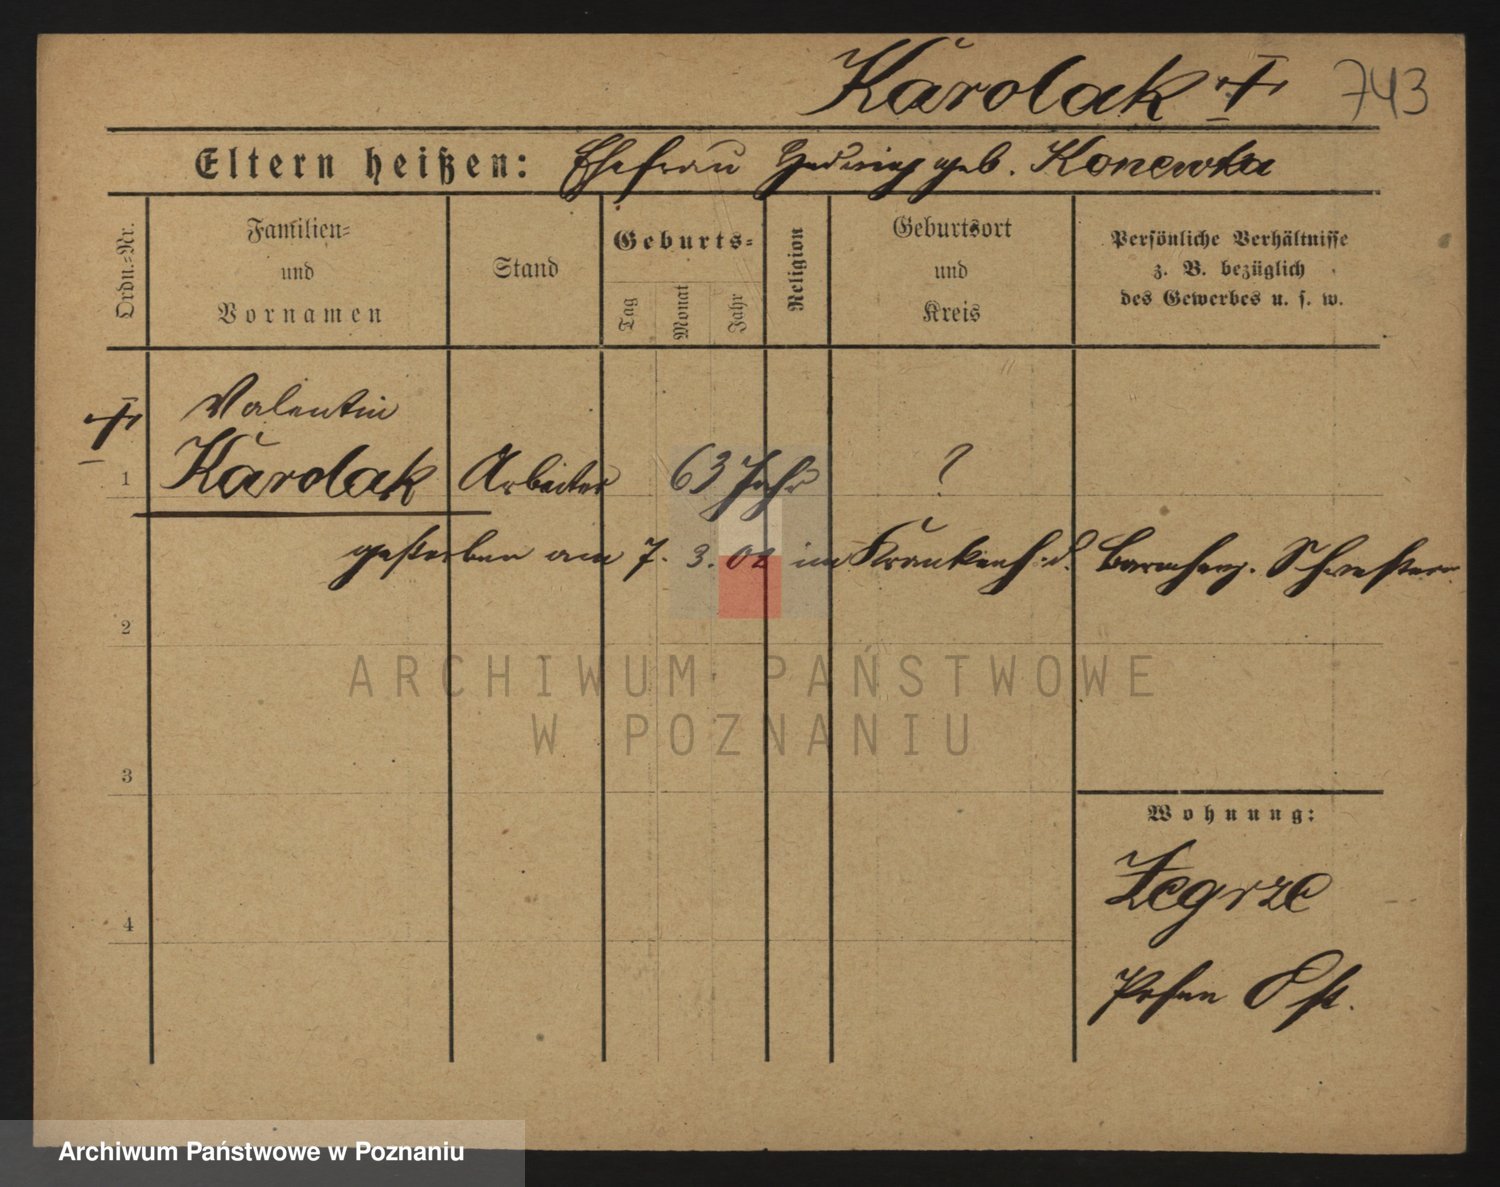 Karolak † 743
Eltern heißen: Ehefrau Hedwig geb. Konewka
Ordn.=Nr.
Familien=
und
Vornamen
Stand
Geburts=
Tag
Monat
Jahr
Religion
Geburtsort
und
Kreis
Persönliche Verhältnisse
z. B. bezüglich
des Gewerbes u. s. w.
† Valentin
1 Karolak Arbeiter 63 Jahr ?
gestorben am 7. 3. 02 im Krankenh. d. Barmherz. Schwestern.
2
ARCHIWUM PAŃSTWOWE
W POZNANIU
3
Wohnung:
Żegrze
4
Posen Ost.
Archiwum Państwowe w Poznaniu